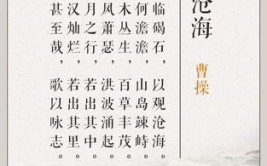 沧海
曹操
临碣石，以观沧海。
何澹澹，山岛竦峙。
木丛生，百草丰茂。
风萧瑟，洪波涌起。
月之行，若出其中。
汉灿烂，若出其里。
甚至哉，歌以咏志。